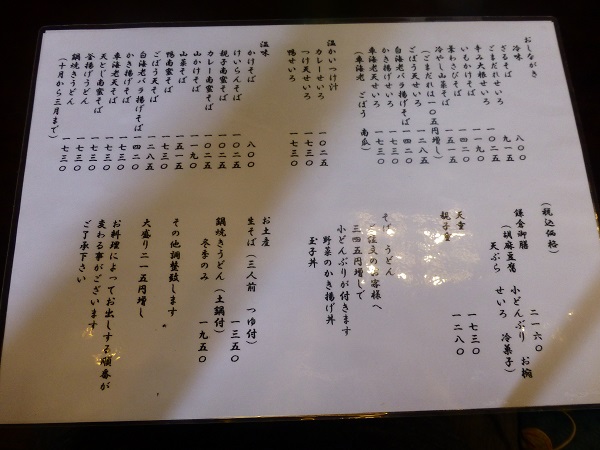 おしながき
冷味
ざるそば 八〇〇
ごまだれせいろ 九一五
辛み大根せいろ 一〇二五
いもかけそば 一一九〇
茎わさびそば 一一三〇
冷やし山菜そば 一五一五
(ごまだれは一〇五円増し)
ごぼう天せいろ 一二八五
白海老バラ揚げそば 一四二〇
かき揚げせいろ 一七三〇
車海老天せいろ 一七三〇
(車海老 ごぼう 南瓜)
温かいつけ汁
カレーせいろ 一〇二五
つけ天せいろ 一七三〇
鴨せいろ 一七三〇
温味
かけそば 八〇〇
けいらんそば 一〇二五
親子南蛮そば 一〇二五
カレー南蛮そば 一〇二五
山かけそば 一一九〇
山菜そば 一五一五
鴨南蛮そば 一五一五
ごぼう天そば 一二八五
白海老バラ揚げそば 一四二〇
かき揚げそば 一七三〇
車海老天そば 一七三〇
天とじ南蛮そば 一七三〇
釜揚げうどん 一七三〇
鍋焼きうどん 一七三〇
(十月から三月まで)
(税込価格)
鎌倉御膳 二一六〇
(胡麻豆腐 小どんぶり お椀
天ぷら せいろ 冷菓子)
天重 一七三〇
親子重 一二八〇
そば うどん
ご注文のお客様へ
三四五円増しで
小どんぶりが付きます
野菜のかき揚げ丼
玉子丼
お土産
生そば(三人前 つゆ付) 一三五〇
鍋焼きうどん(土鍋付) 一九五〇
冬季のみ
その他調整致します
大盛り二一五円増し
お料理によってお出しする順番が
変わる事がございます
ご了承下さい